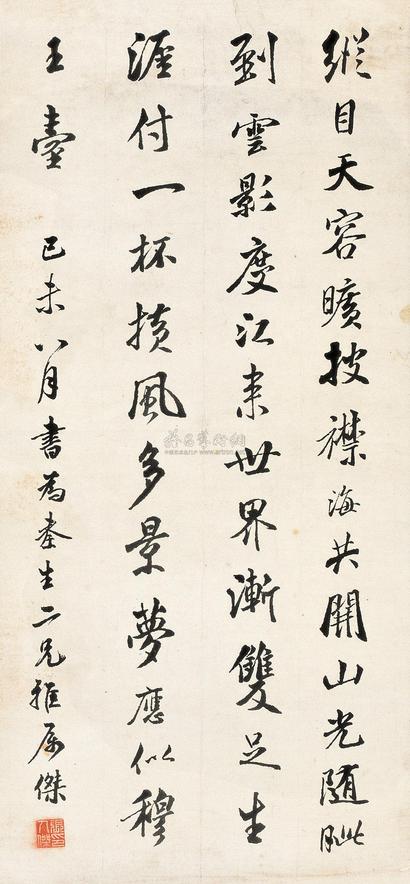 縱目天容曠披襟海共開山光隨眦
到雲影度江来世界漸雙足生
涯付一杯撗風多景夢應似穆
王臺
己未八月書為秦生二兄雅属傑
雅昌藝術網